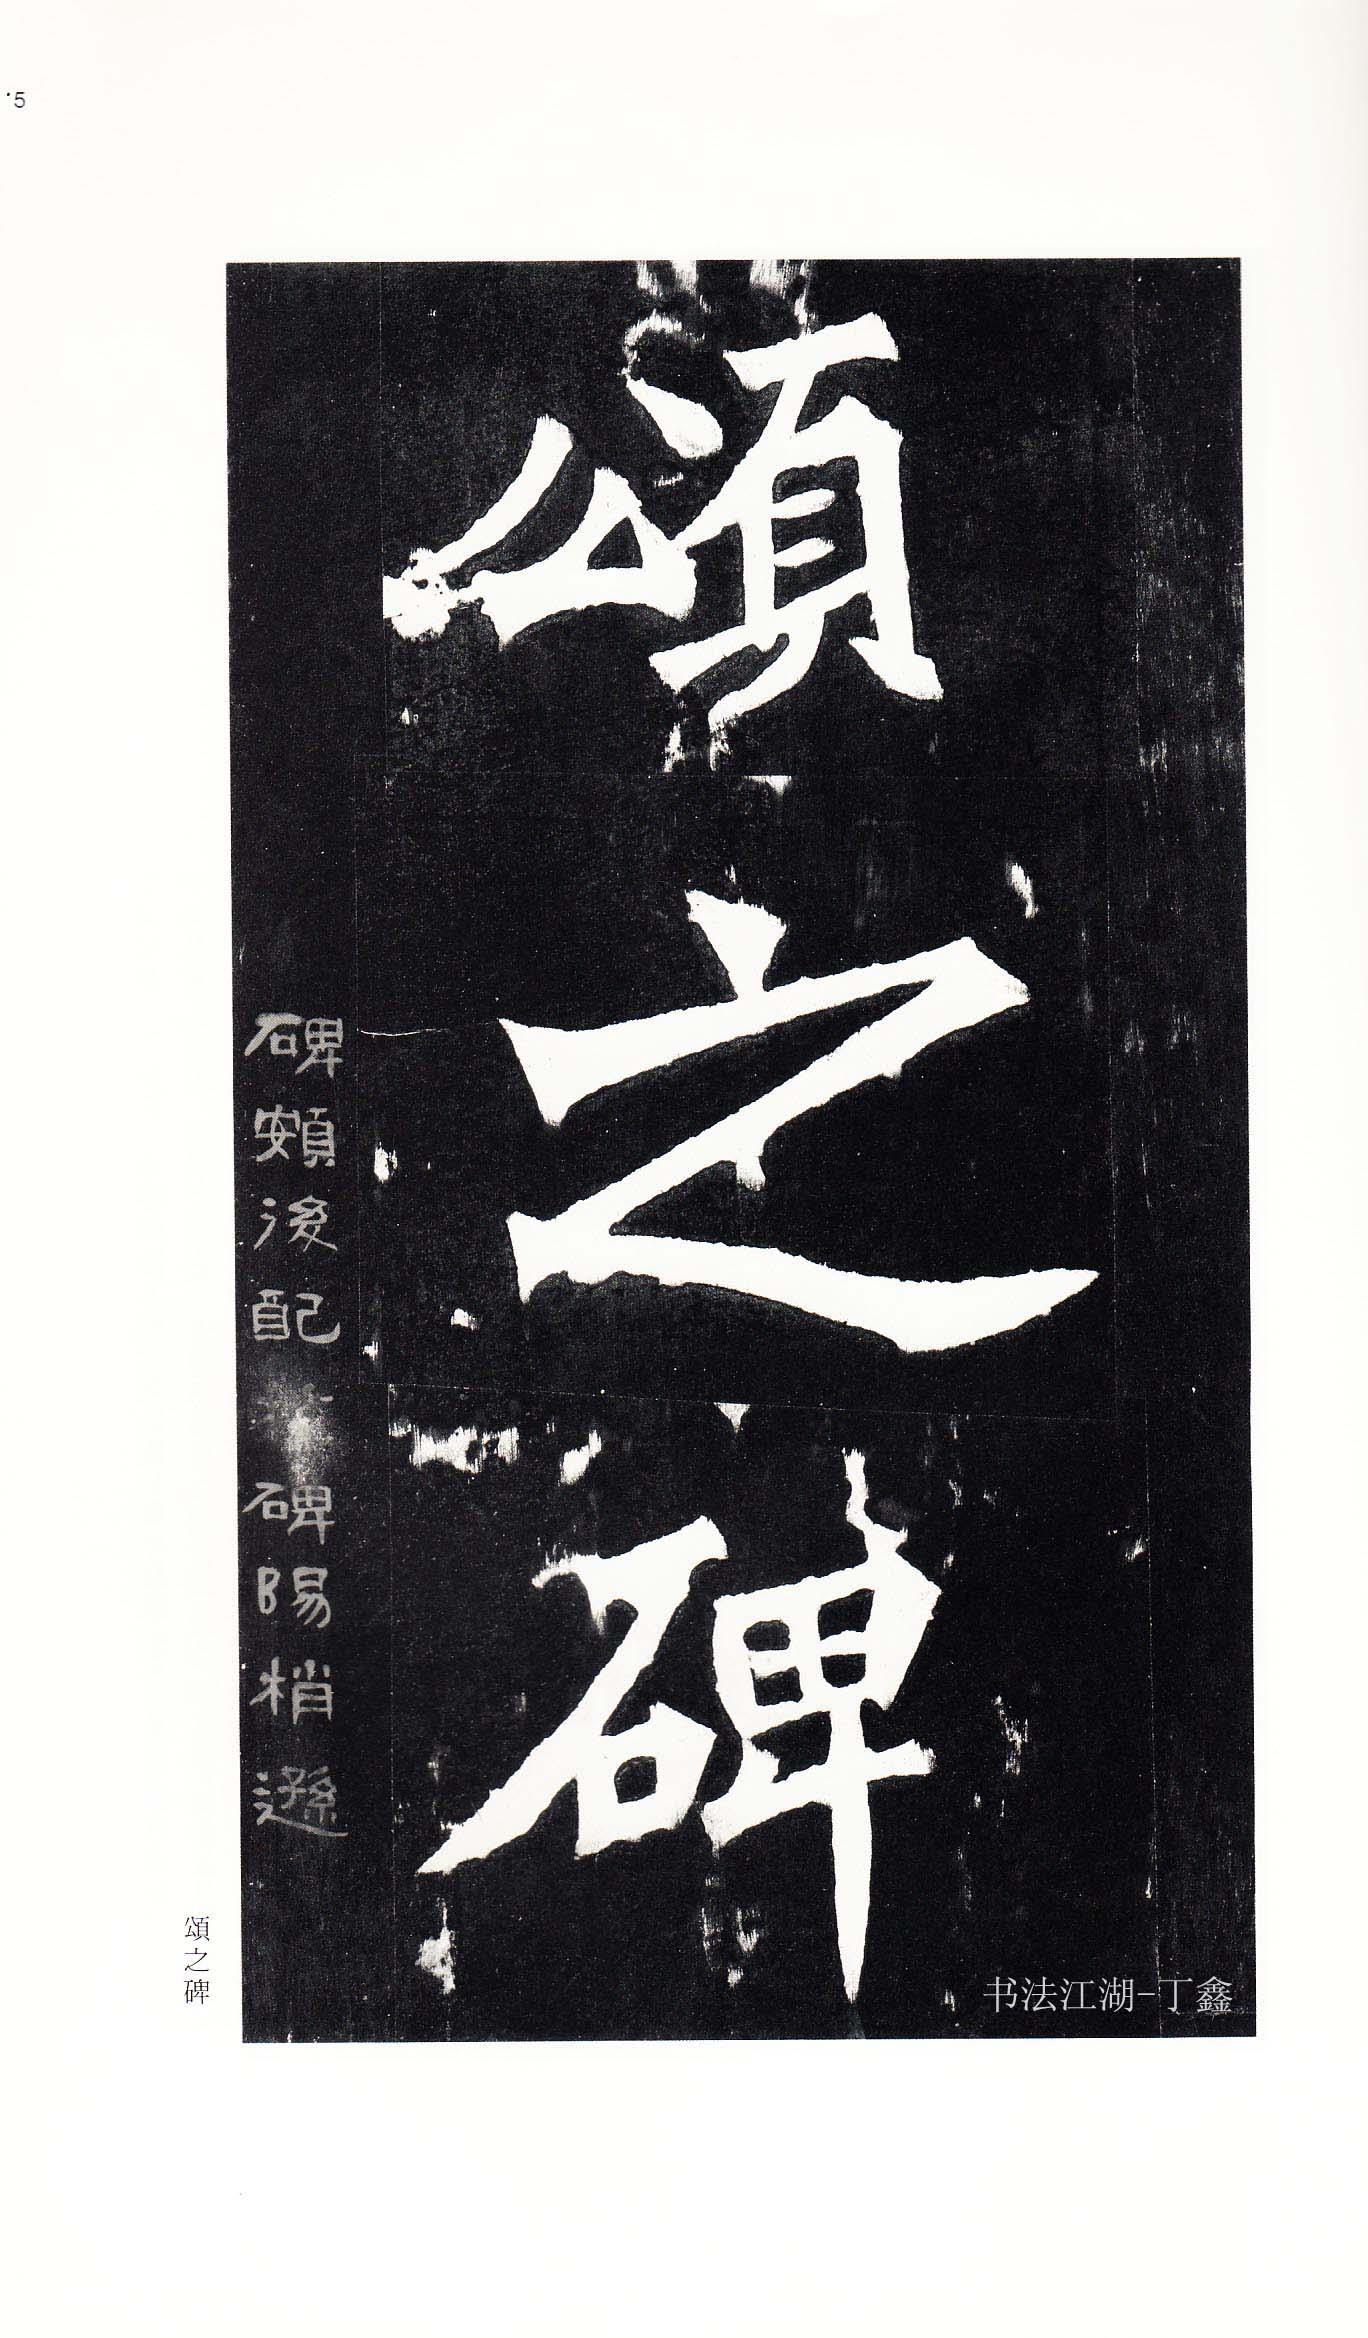 5
頌之碑
碑頞後配 碑陽稍遜
頌之碑
书法江湖-丁鑫